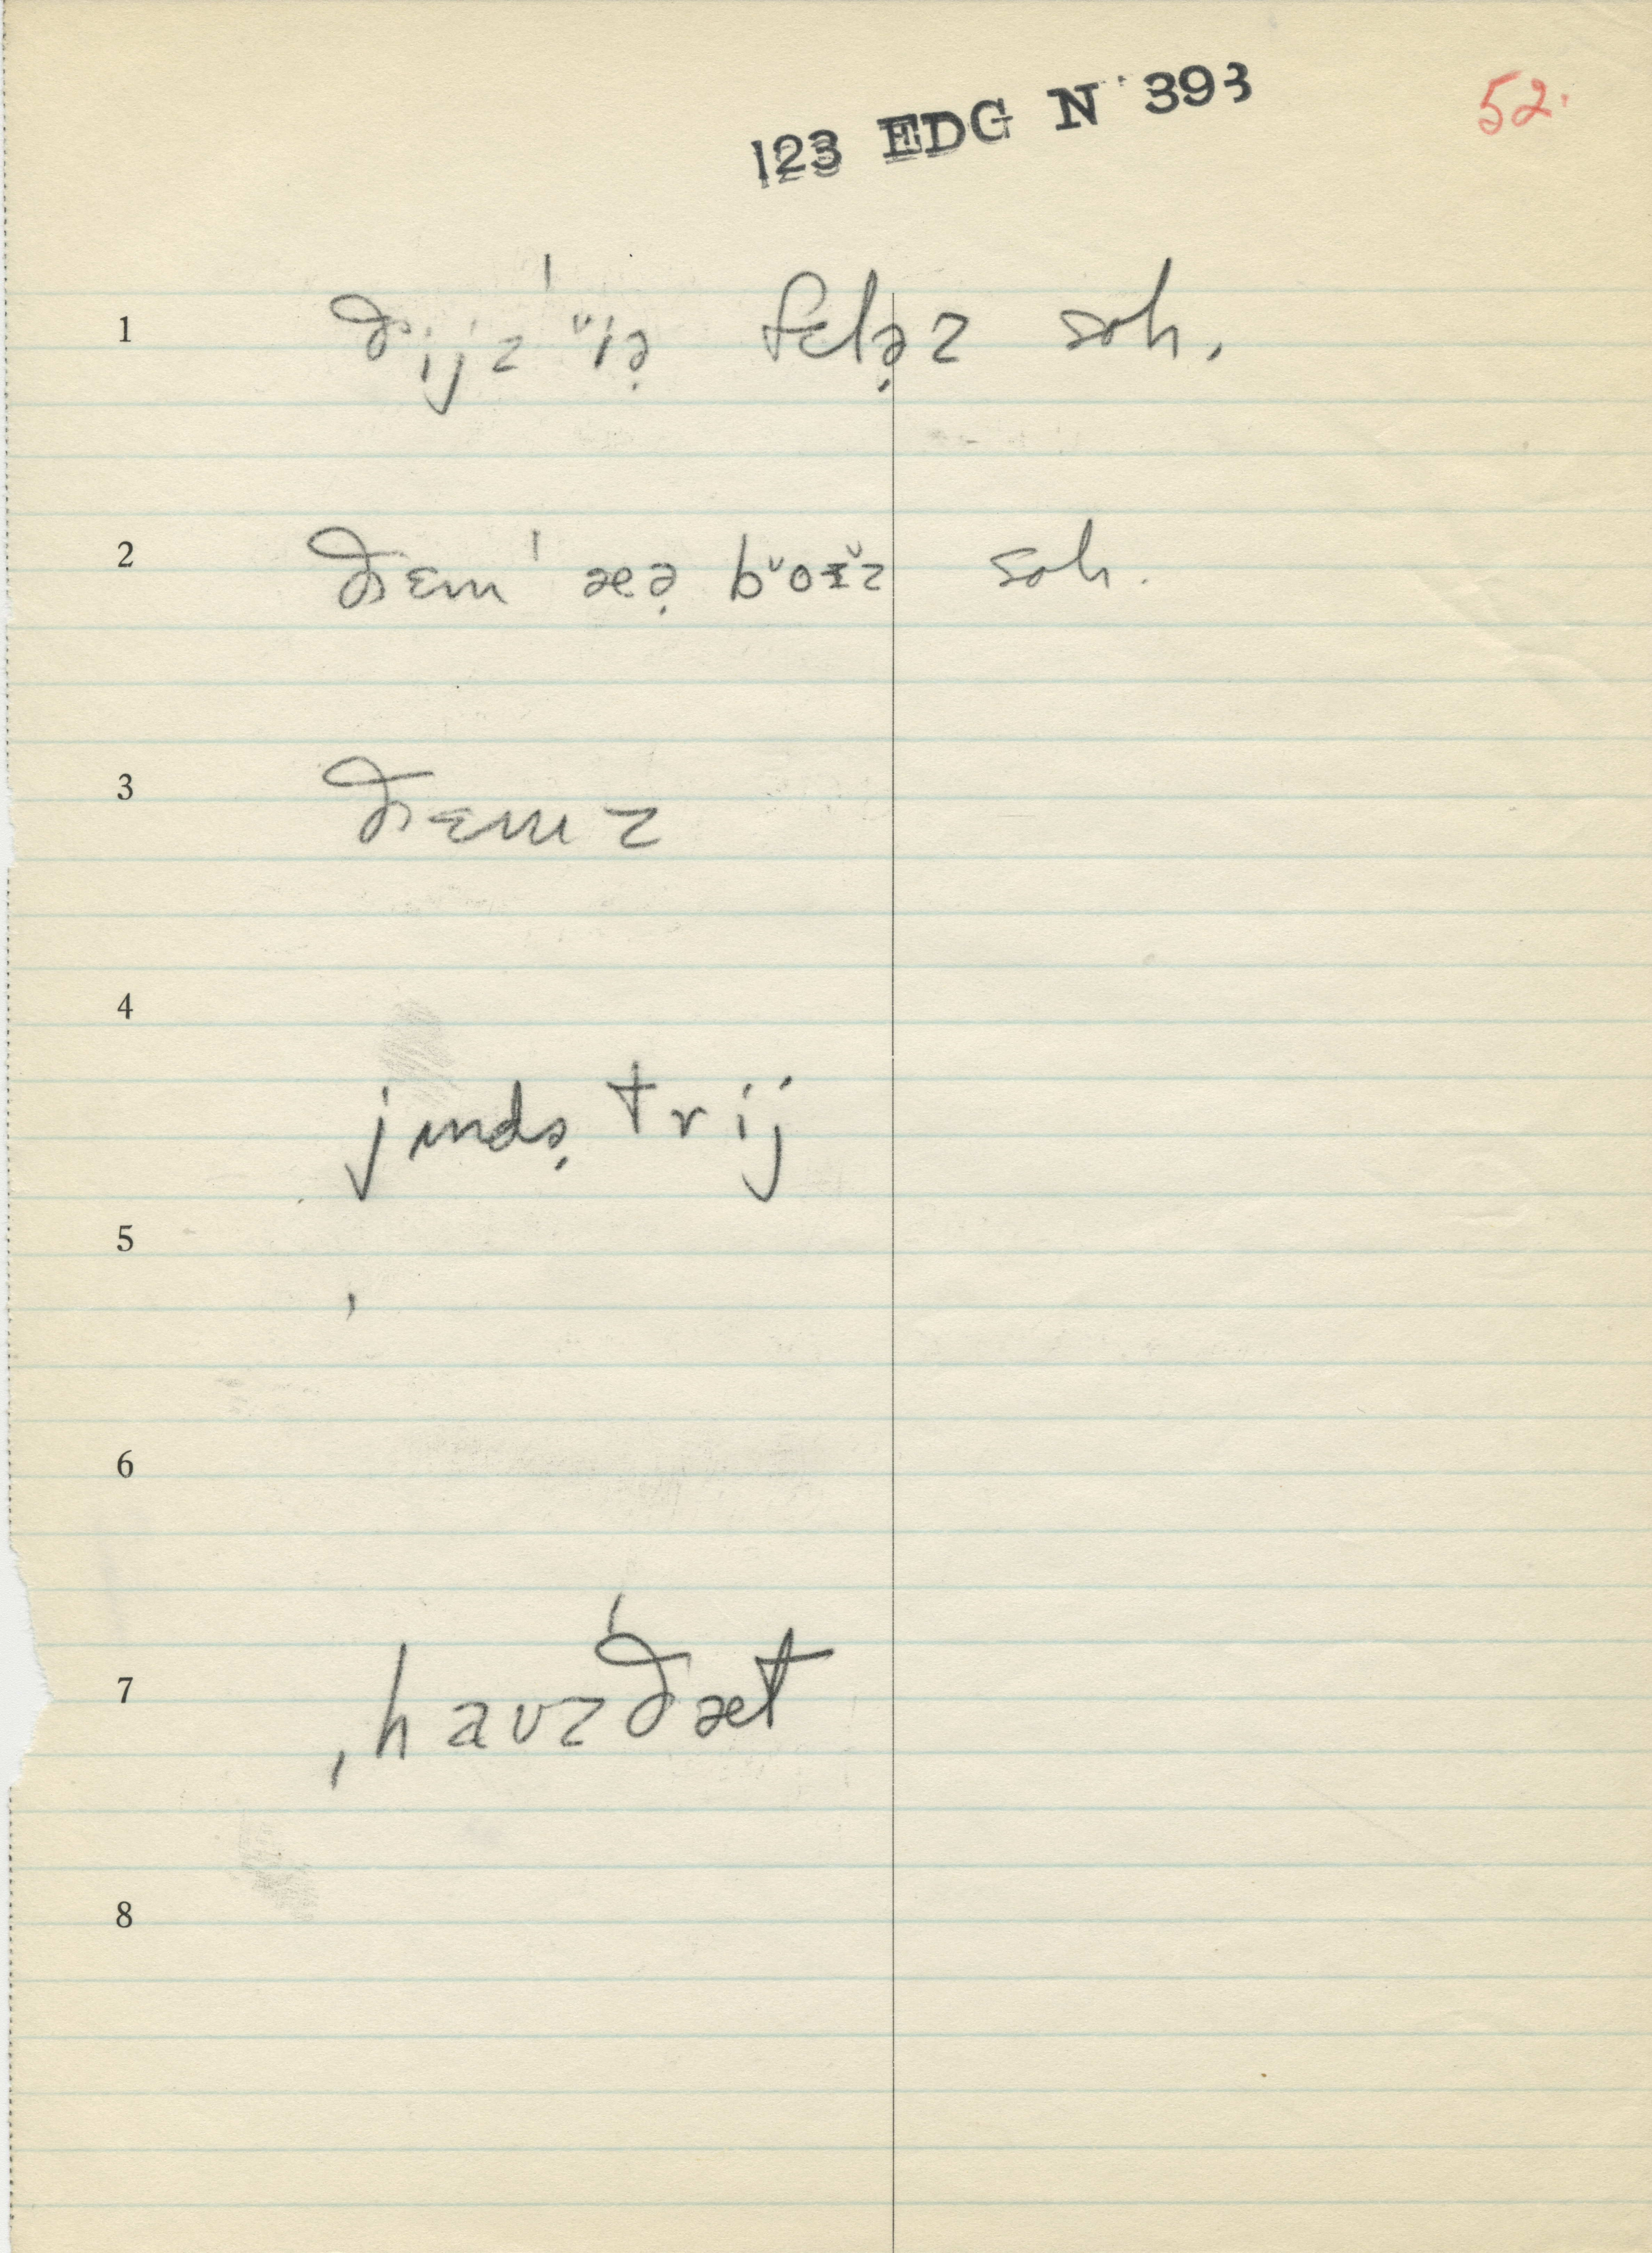 123 EDG N 393
52.
1 ðijz ˈɪ̆ɪə̣ felə̣z soh.
2 ðɛm ˈæə̣ bŏɪ̆z soh.
3 ðɛmz
4
jɪndə̣trij
5
6
7 ˌhauzˈðæt
8